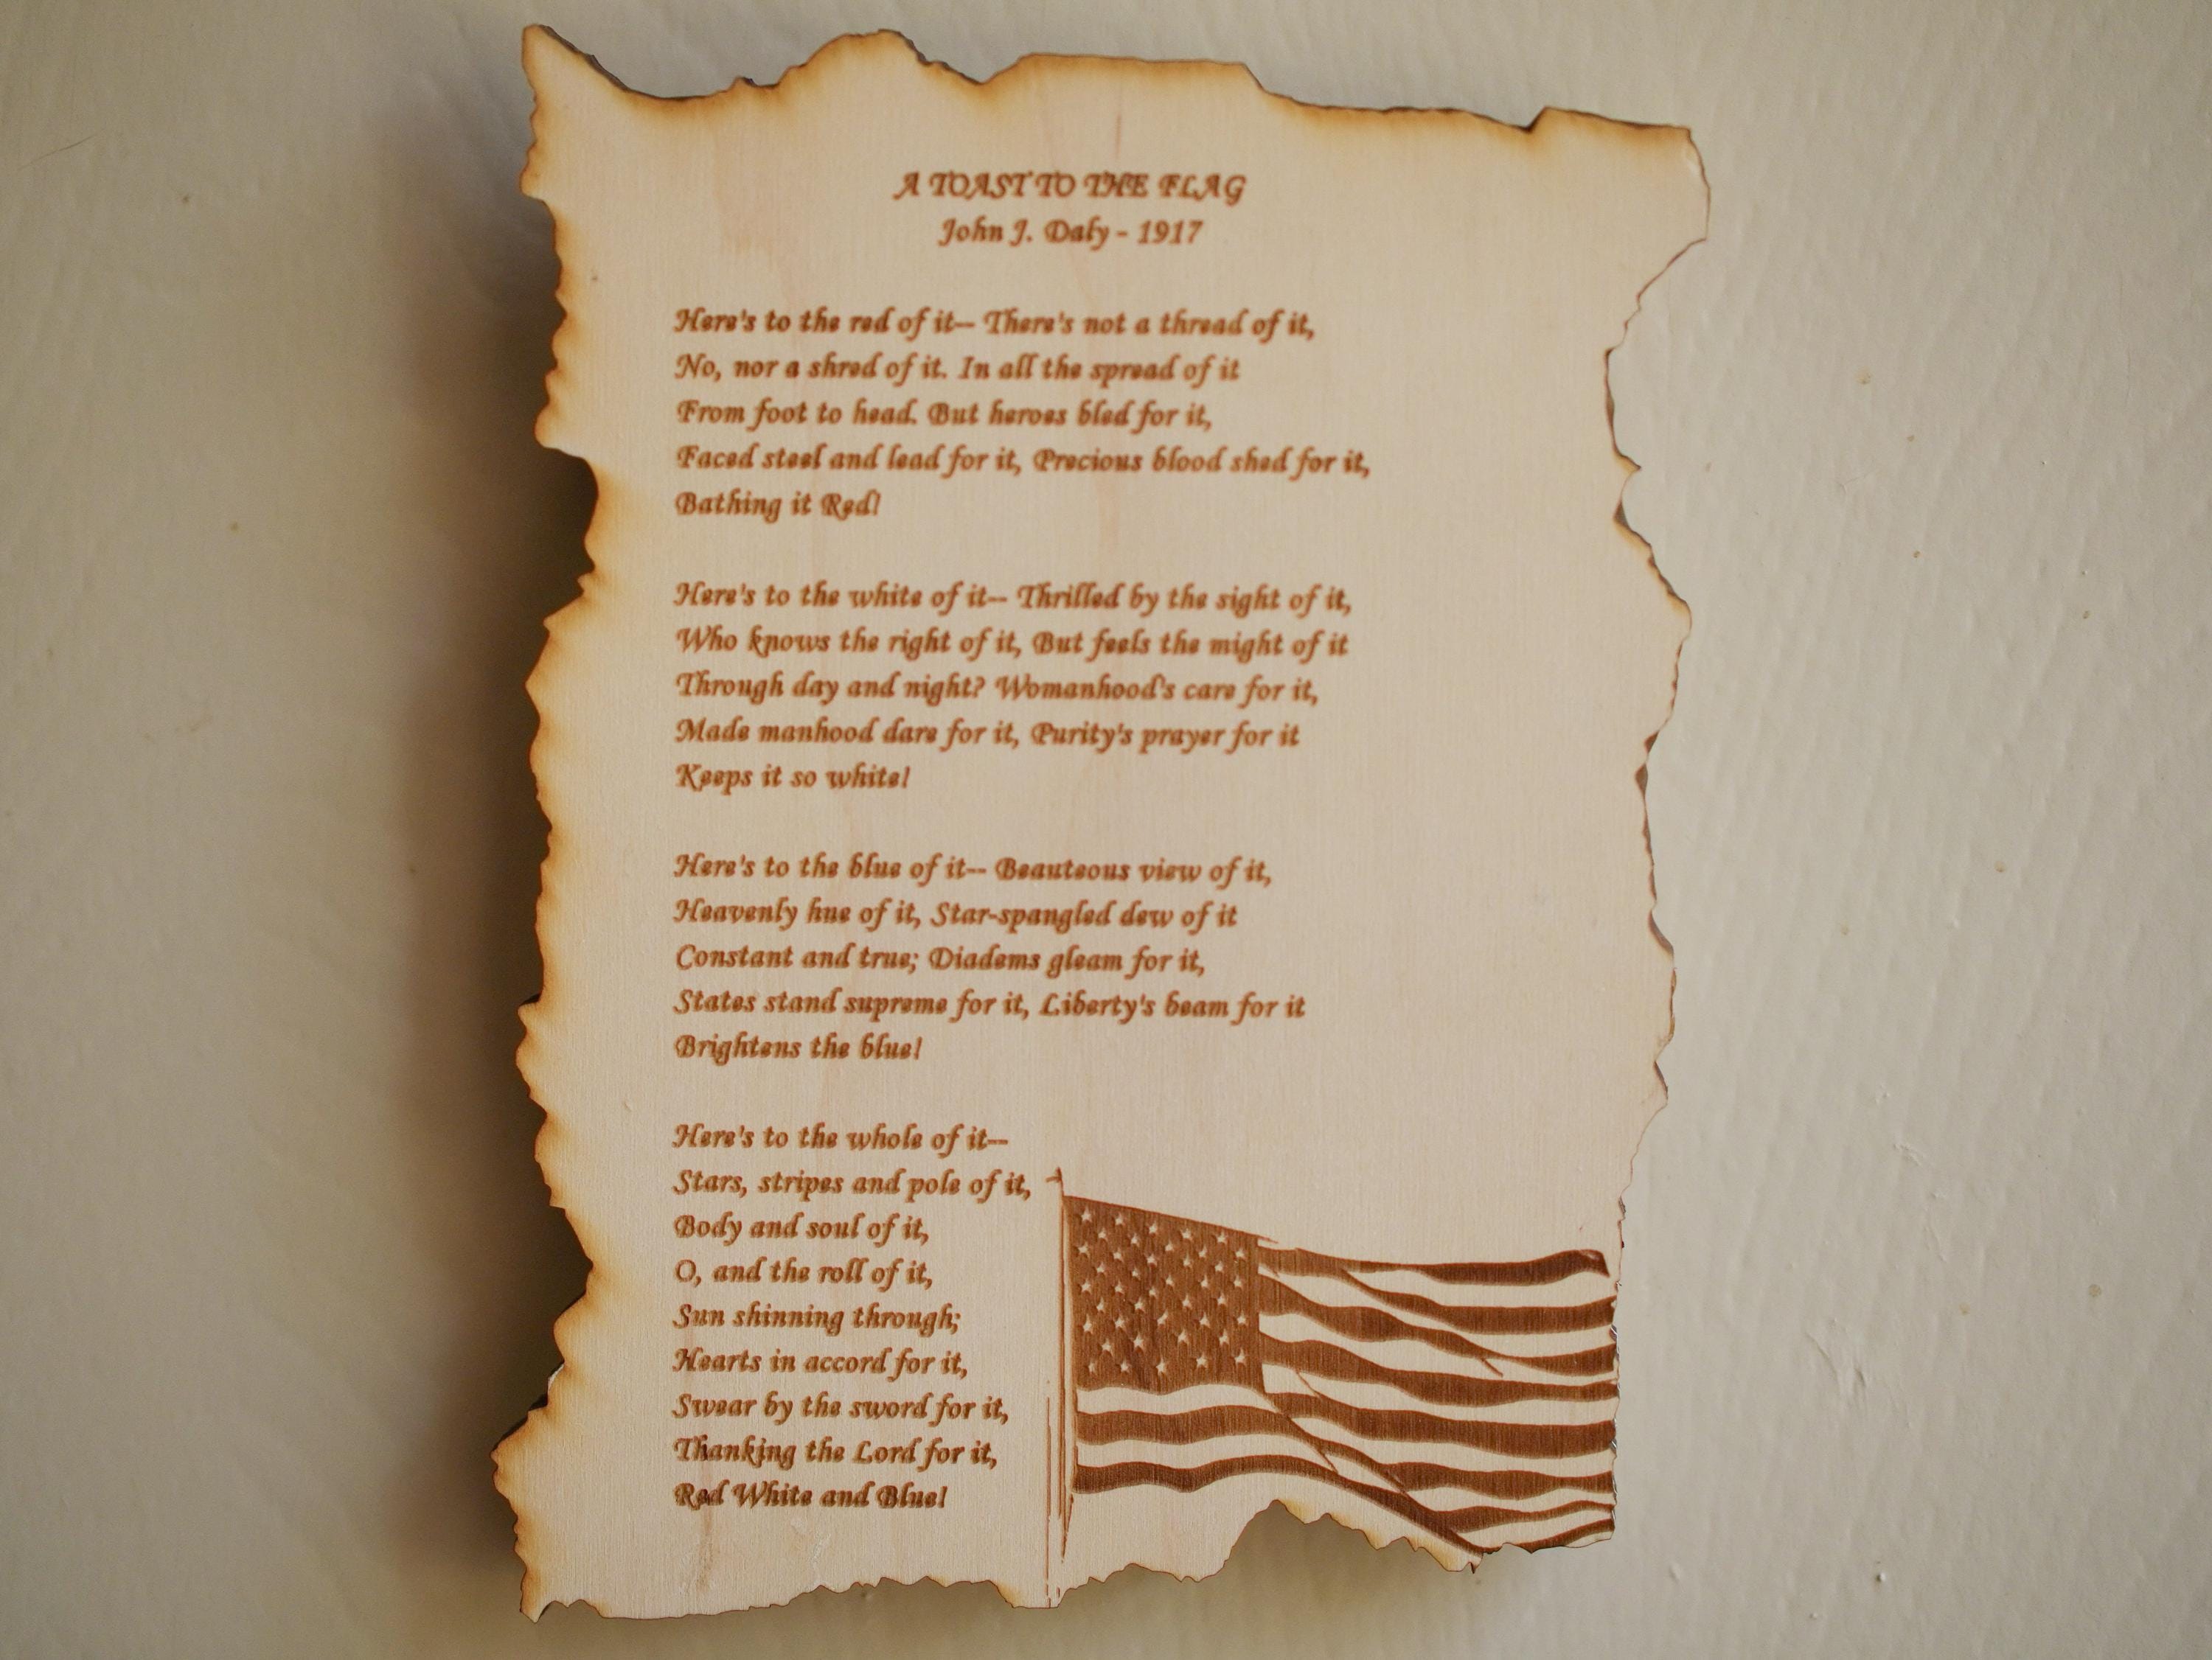 A TOAST TO THE FLAG
John J. Daly - 1917
Here's to the red of it-- There's not a thread of it,
No, nor a shred of it. In all the spread of it
From foot to head. But heroes bled for it,
Faced steel and lead for it, Precious blood shed for it,
Bathing it Red!
Here's to the white of it-- Thrilled by the sight of it,
Who knows the right of it, But feels the might of it
Through day and night? Womanhood's care for it,
Made manhood dare for it, Purity's prayer for it
Keeps it so white!
Here's to the blue of it-- Beauteous view of it,
Heavenly hue of it, Star-spangled dew of it
Constant and true; Diadems gleam for it,
States stand supreme for it, Liberty's beam for it
Brightens the blue!
Here's to the whole of it--
Stars, stripes and pole of it,
Body and soul of it,
O, and the roll of it,
Sun shinning through;
Hearts in accord for it,
Swear by the sword for it,
Thanking the Lord for it,
Red White and Blue!